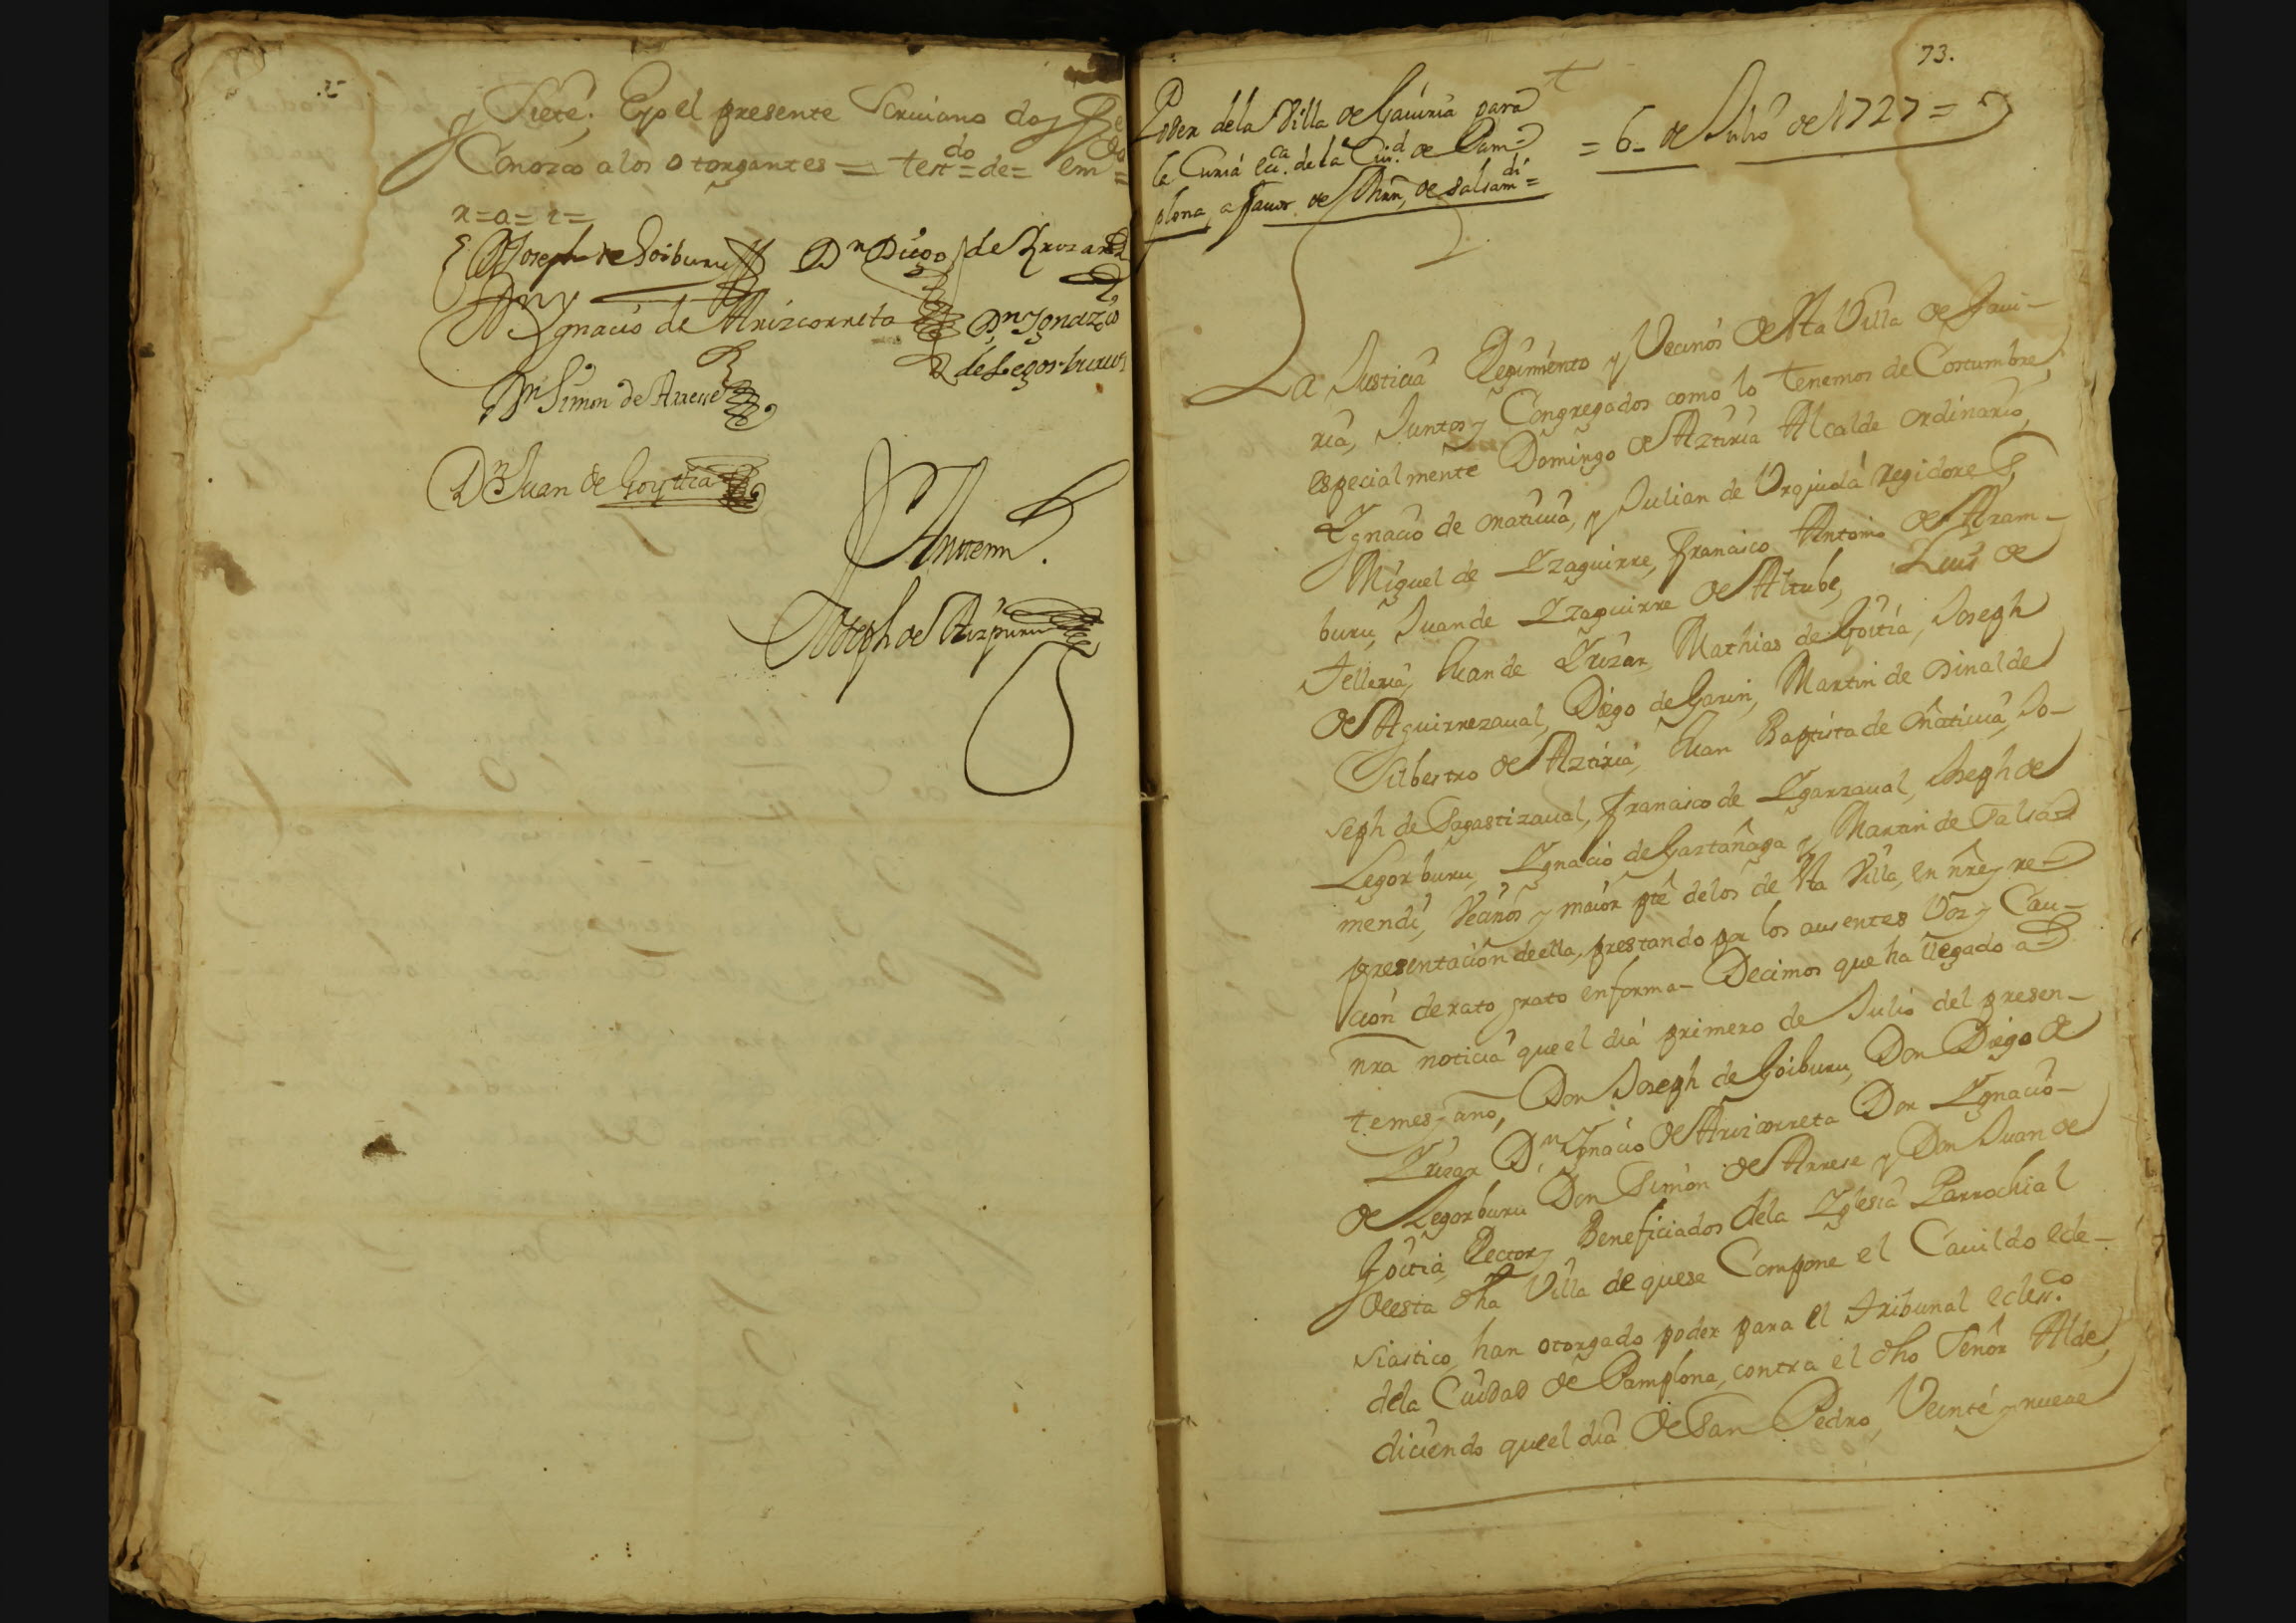 y Siete; Eyo el presente Scriuano doy fee
Conozco alos otorgantes = testdo = de = emdo =
x = a = r =
Dn Joseph de Goiburu Dn Diego de Yrizar
Dn Ygnacio de Arizcorreta Dn Ignazio
de Legorburu
Dn Simon de Arrese
Dn Juan de Goytia
Antemi
Joseph de Aizpuru
73.
Poder dela Villa de Gauiria para
la Curia ecca. de la Ciud. de Pam=
plona, a fauor de Mrn, de Salsamdi =
= 6_ de Julio de 1727 =
La Justicia Regimiento y Vecinos de sta Villa de Gaui-
ria, Juntos y Congregados como lo tenemos de Costumbre,
especialmente Domingo de Aztiria Alcalde ordinario,
Ygnacio de oñatiuia, y Julian de Vrquiola regidores,
Miguel de Yzaguirre, Francisco Antonio de Aram-
buru, Juan de Yzaguirre de Altube, Luis de
Telleria, Juan de Yrizar, Mathias de Goitia, Joseph
de Aguirrezaual, Diego de Garin, Martin de Dinalde
Silbestro de Aztiria, Juan Baptista de oñatiuia, Jo-
seph de Sagastizaual, Francisco de Ygarzaual, Joseph de
Legorburu, Ygnacio de Gastañaga y Martin de Salsa-
mendi, Vecinos y maior pte delos de sta Villa, en nre y re-
presentacion de ella, prestando por los ausentes Voz y Cau-
cion de rato grato en forma - Decimos que ha llegado a
nra noticia que el dia primero de Julio del presen-
te mes y año, Don Joseph de Goiburu, Don Diego de
Yrizar Dn. Ignacio de Arizcorreta Don Ygnacio-
de Legorburu Don Simon de Arrese y Don Juan de
Goitia, Rector y Beneficiados dela Yglesia Parrochial
de esta dha Villa de quese Compone el Cauildo ecle-
siastico, han otorgado poder para el tribunal eclessco.
dela Ciudad de Pamplona, contra el dho Señor Alde,
diciendo que el dia de San Pedro, Veinte y nueue